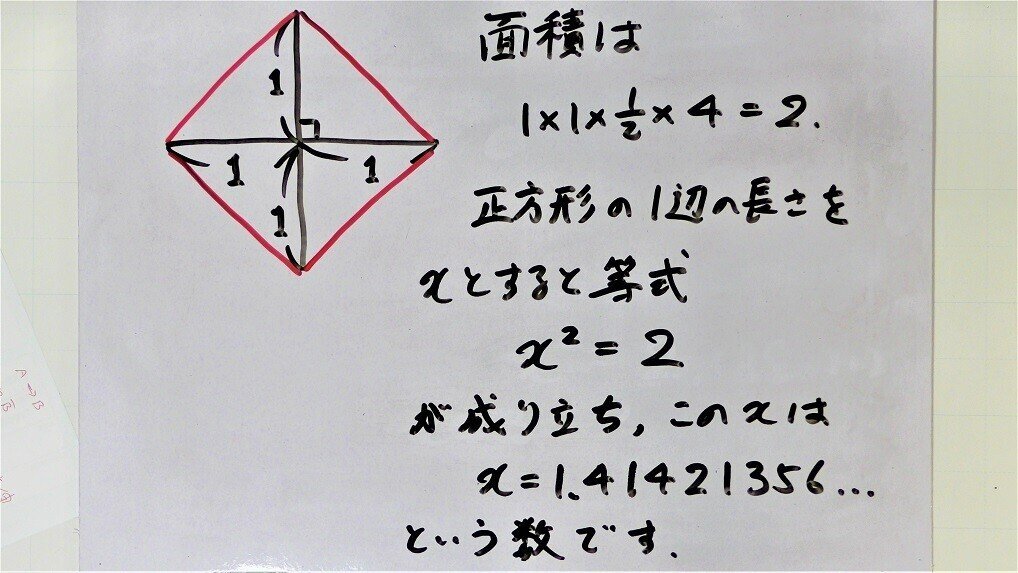 1
1
1
1
面積は
1×1×1/2×4=2.
正方形の1辺の長さを
xとすると等式
x²=2
が成り立ち,このxは
x=1.41421356...
という数です.
A↔B